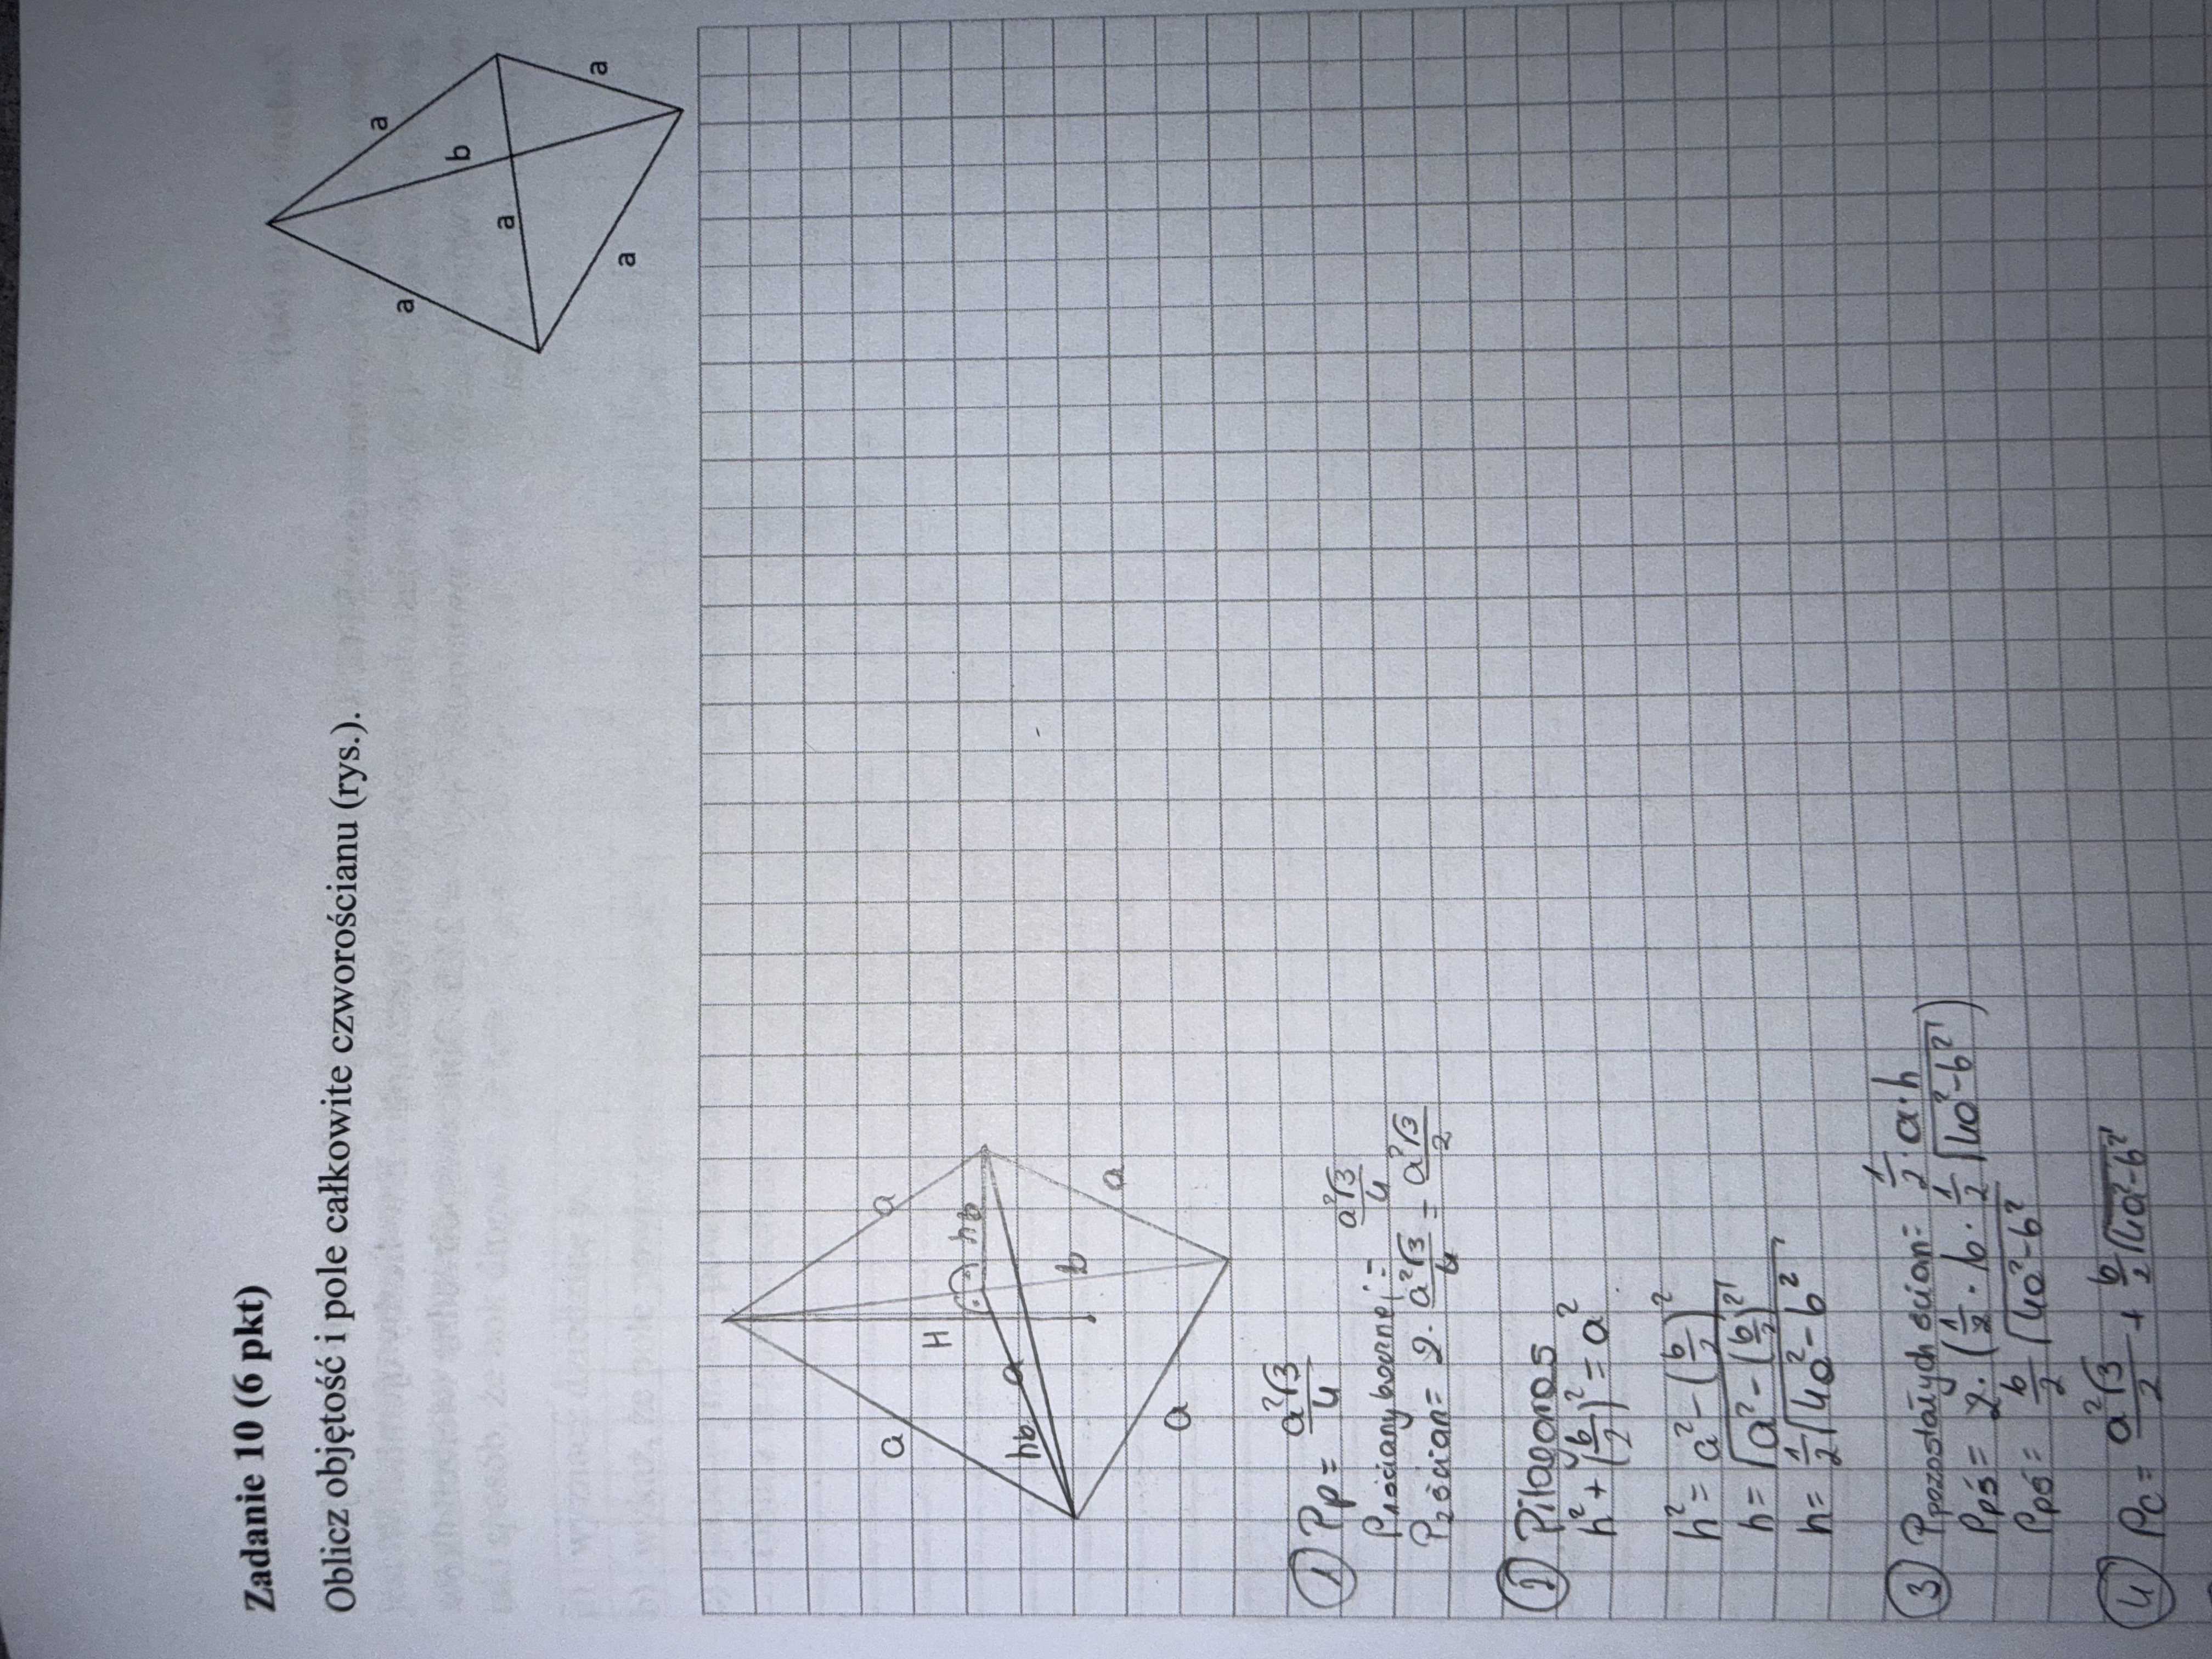 Zadanie 10 (6 pkt)
Oblicz objętość i pole całkowite czworościanu (rys.).
a
a
b
a
a
a
a
a
H
hb
hb
a
b
a
a
① Pp = a²√3/4
P1ściany bocznej = a²√3/4
P2ścian = 2 · a²√3/4 = a²√3/2
② Pitagoras
h² + (b/2)² = a²
h² = a² - (b/2)²
h = √(a² - (b/2)²)
h = 1/2 √(4a² - b²)
③ Ppozostałych ścian = 1/2 · a · h
Ppś = 2 · (1/2 · b · 1/2 √(4a² - b²))
Ppś = b/2 √(4a² - b²)
④ Pc = a²√3/2 + b/2 √(4a² - b²)